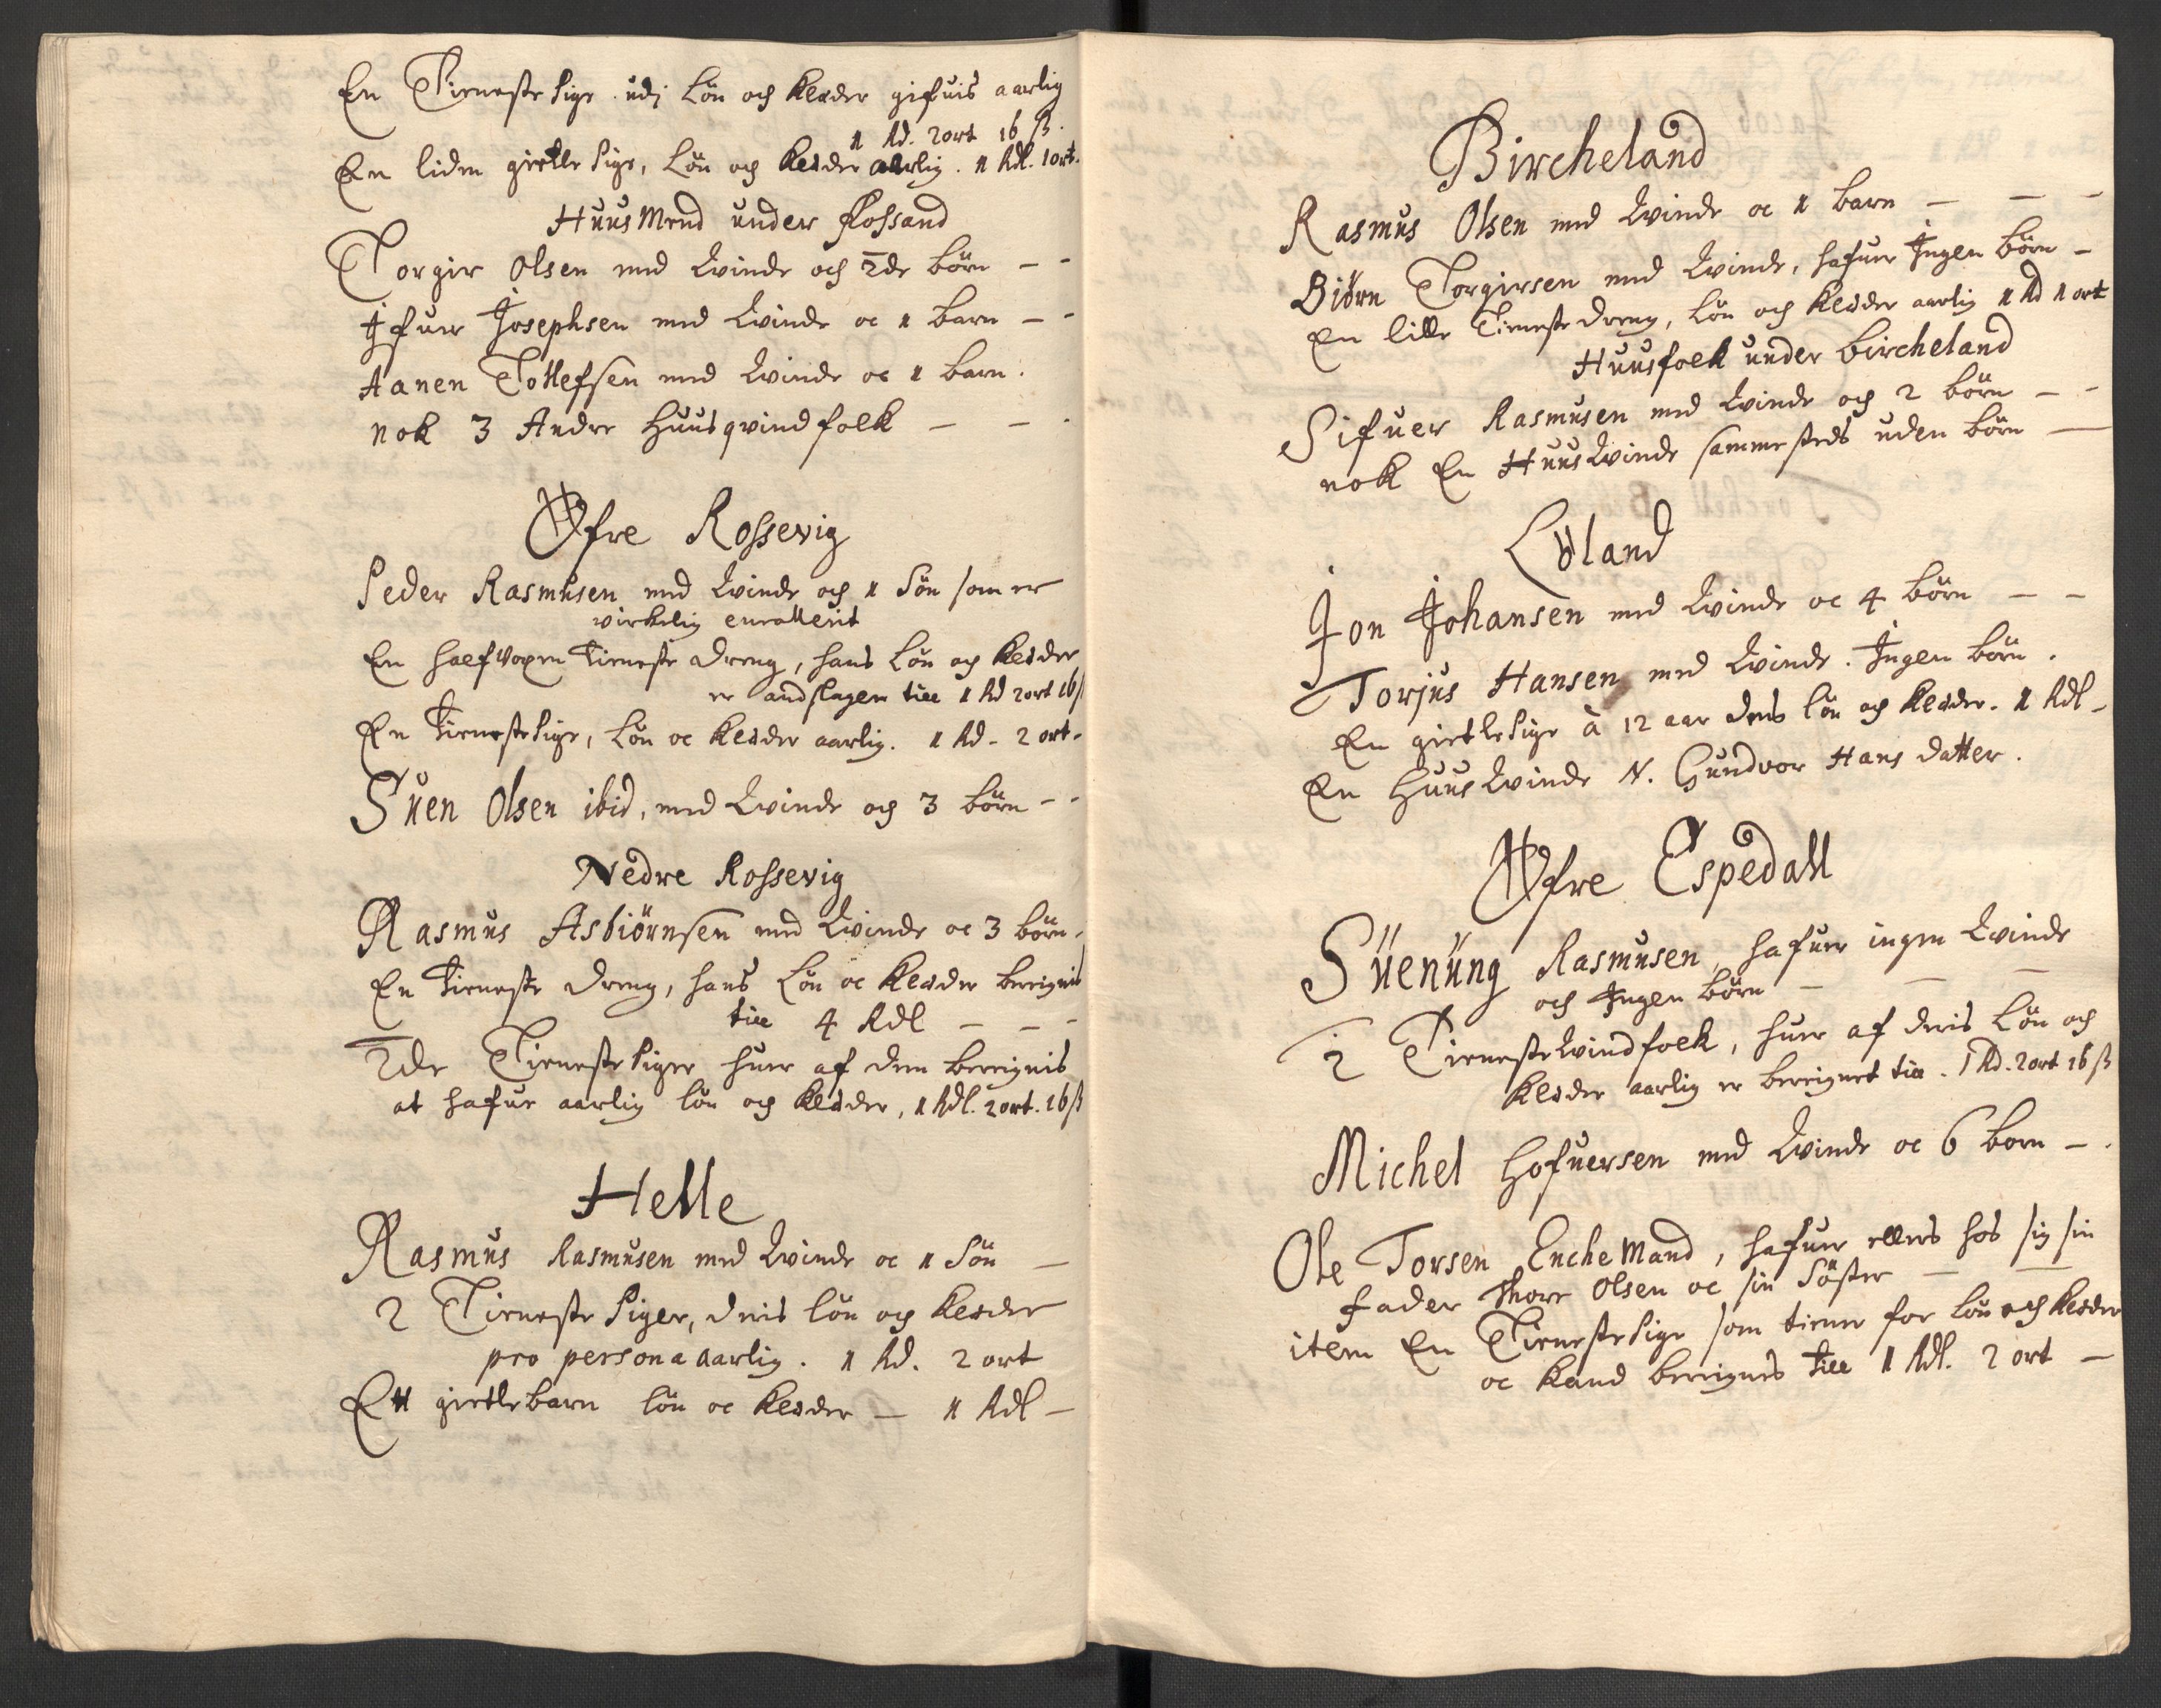 En Tieneste Pige udj Løn och Kleder gifuis aarlig
1 Rd. 2 ort 16 ß.
En liden gietle Pige, Løn og Kleder aarlig. 1 Rdl. 1 ort.
Huus Mend under Fossand
Torgier Olsen med Qvinde och 2de børn - -
Ifuer Josephsen med Qvinde oc 1 barn - -
Aanen Tollefsen med Qvinde oc 1 barn.
nok 3 Andre Huusqvindfolk - - -
Øfre Rossevig
Peder Rasmusen med Qvinde og 1 Søn som er
virkelig enrollerit
En halfvoxen Tieneste dreng, hans Løn og Kleder
er andslagen till 1 Rd 2 ort 16 ß
En Tieneste Pige, Løn oc Kleder aarlig. 1 Rd - 2 ort -
Suen Olsen ibid, med Qvinde og 3 børn - -
Nedre Rossevig
Rasmus Asbiørnsen med Qvinde oc 3 børn -
En Tieneste dreng, hans Løn oc Kleder bereignis
till 4 Rdl - - -
2de Tieneste Piger huer af dem bereignis
at hafue aarlig løn og Kleder, 1 Rdl. 2 ort. 16 ß
Helle
Rasmus Rasmusen med Qvinde oc 1 Søn -
2 Tieneste Piger, deris løn og Kleder
pro persona aarlig. 1 Rd. 2 ort
Ett gietlebarn løn oc Kleder - 1 Rdl -
Bircheland
Rasmus Olsen med Qvinde oc 1 barn - - -
Biørn Torgiersen med Qvinde, hafuer Ingen børn -
En lille Tieneste dreng, Løn och Kleder aarlig 1 Rd 1 ort
Huusfolk under bircheland
Sifuer Rasmusen med Qvinde och 2 børn - -
nok En Huus Qvinde sammesteds uden børn -
Løland
Jon Johansen med Qvinde oc 4 børn - -
Torjus Hansen med Qvinde. Ingen børn.
En gietle Pige à 12 aar dens løn og Kleder. 1 Rdl -
En Huus Qvinde N. Gundvor Hans datter.
Øfre Espedall
Suenung Rasmusen, hafuer ingen Qvinde
och Ingen børn - - -
2 Tieneste Qvindfolk, huer af deris Løn och
Kleder aarlig er bereignet till. 1 Rd. 2 ort 16 ß
Michel Hofuersen med Qvinde oc 6 born - .
Ole Torsen Enche Mand, hafuer ellers hos sig sin
fader Thore Olsen oc sin Søster - -
item En Tieneste Pige som tiener for løn och Kleder
oc kand bereignes till 1 Rdl. 2 ort -